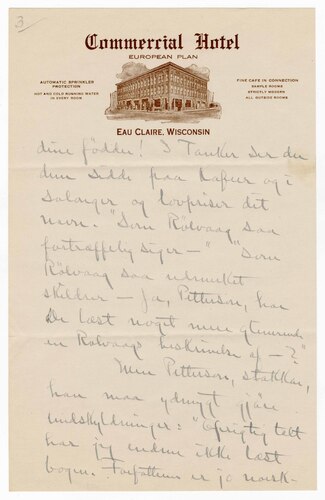 3
Commercial Hotel
EUROPEAN PLAN
AUTOMATIC SPRINKLER
PROTECTION
HOT AND COLD RUNNING WATER
IN EVERY ROOM
FINE CAFE IN CONNECTION
SAMPLE ROOMS
STRICTLY MODERN
ALL OUTSIDE ROOMS
EAU CLAIRE, WISCONSIN
dine födder! I Tanker ser du
dem sidde paa Kafeer og i
Saloner og lovpriser dit
navn. "Som Rölvaag saa
fortræffelig siger —" "Som
Rölvaag saa udmerket
skildrer — Ja, Petterson, har
De læst noget mere
en Rölvaags beskrivelse af —?"
Men Petterson, stakkar,
han maa ydmygt gjöre
undskyldninger: "Oprigtig talt
har jeg endnu ikke læst
bogen. Forfatteren er jo norsk-